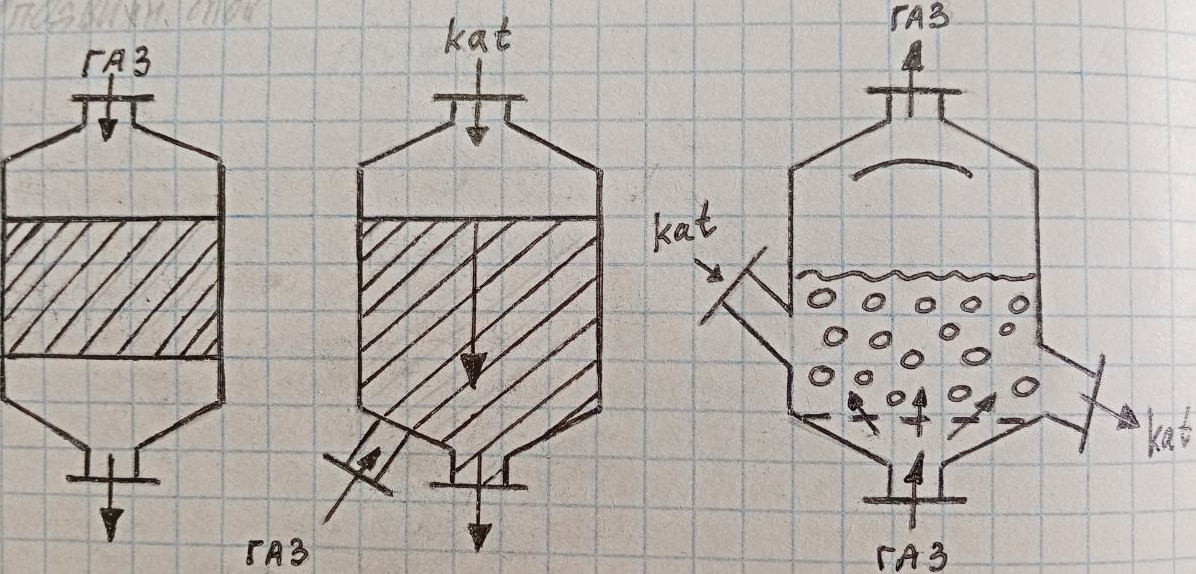 ГАЗ
kat
ГАЗ
kat
ГАЗ
kat
ГАЗ